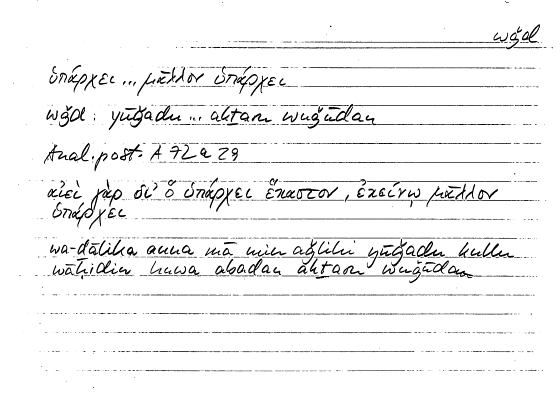 wǧd
ὑπάρχει ... μᾶλλον ὑπάρχει
wǧd : yūǧadu ... akṯaru wuǧūdan
Anal. post. A 72 a 29
αἰεὶ γὰρ δι' ὃ ὑπάρχει ἕκαστον, ἐκείνῳ μᾶλλον
ὑπάρχει
wa-ḏālika anna mā min aǧlihi yūǧadu kullu
wāḥidin huwa abadan akṯaru wuǧūdan